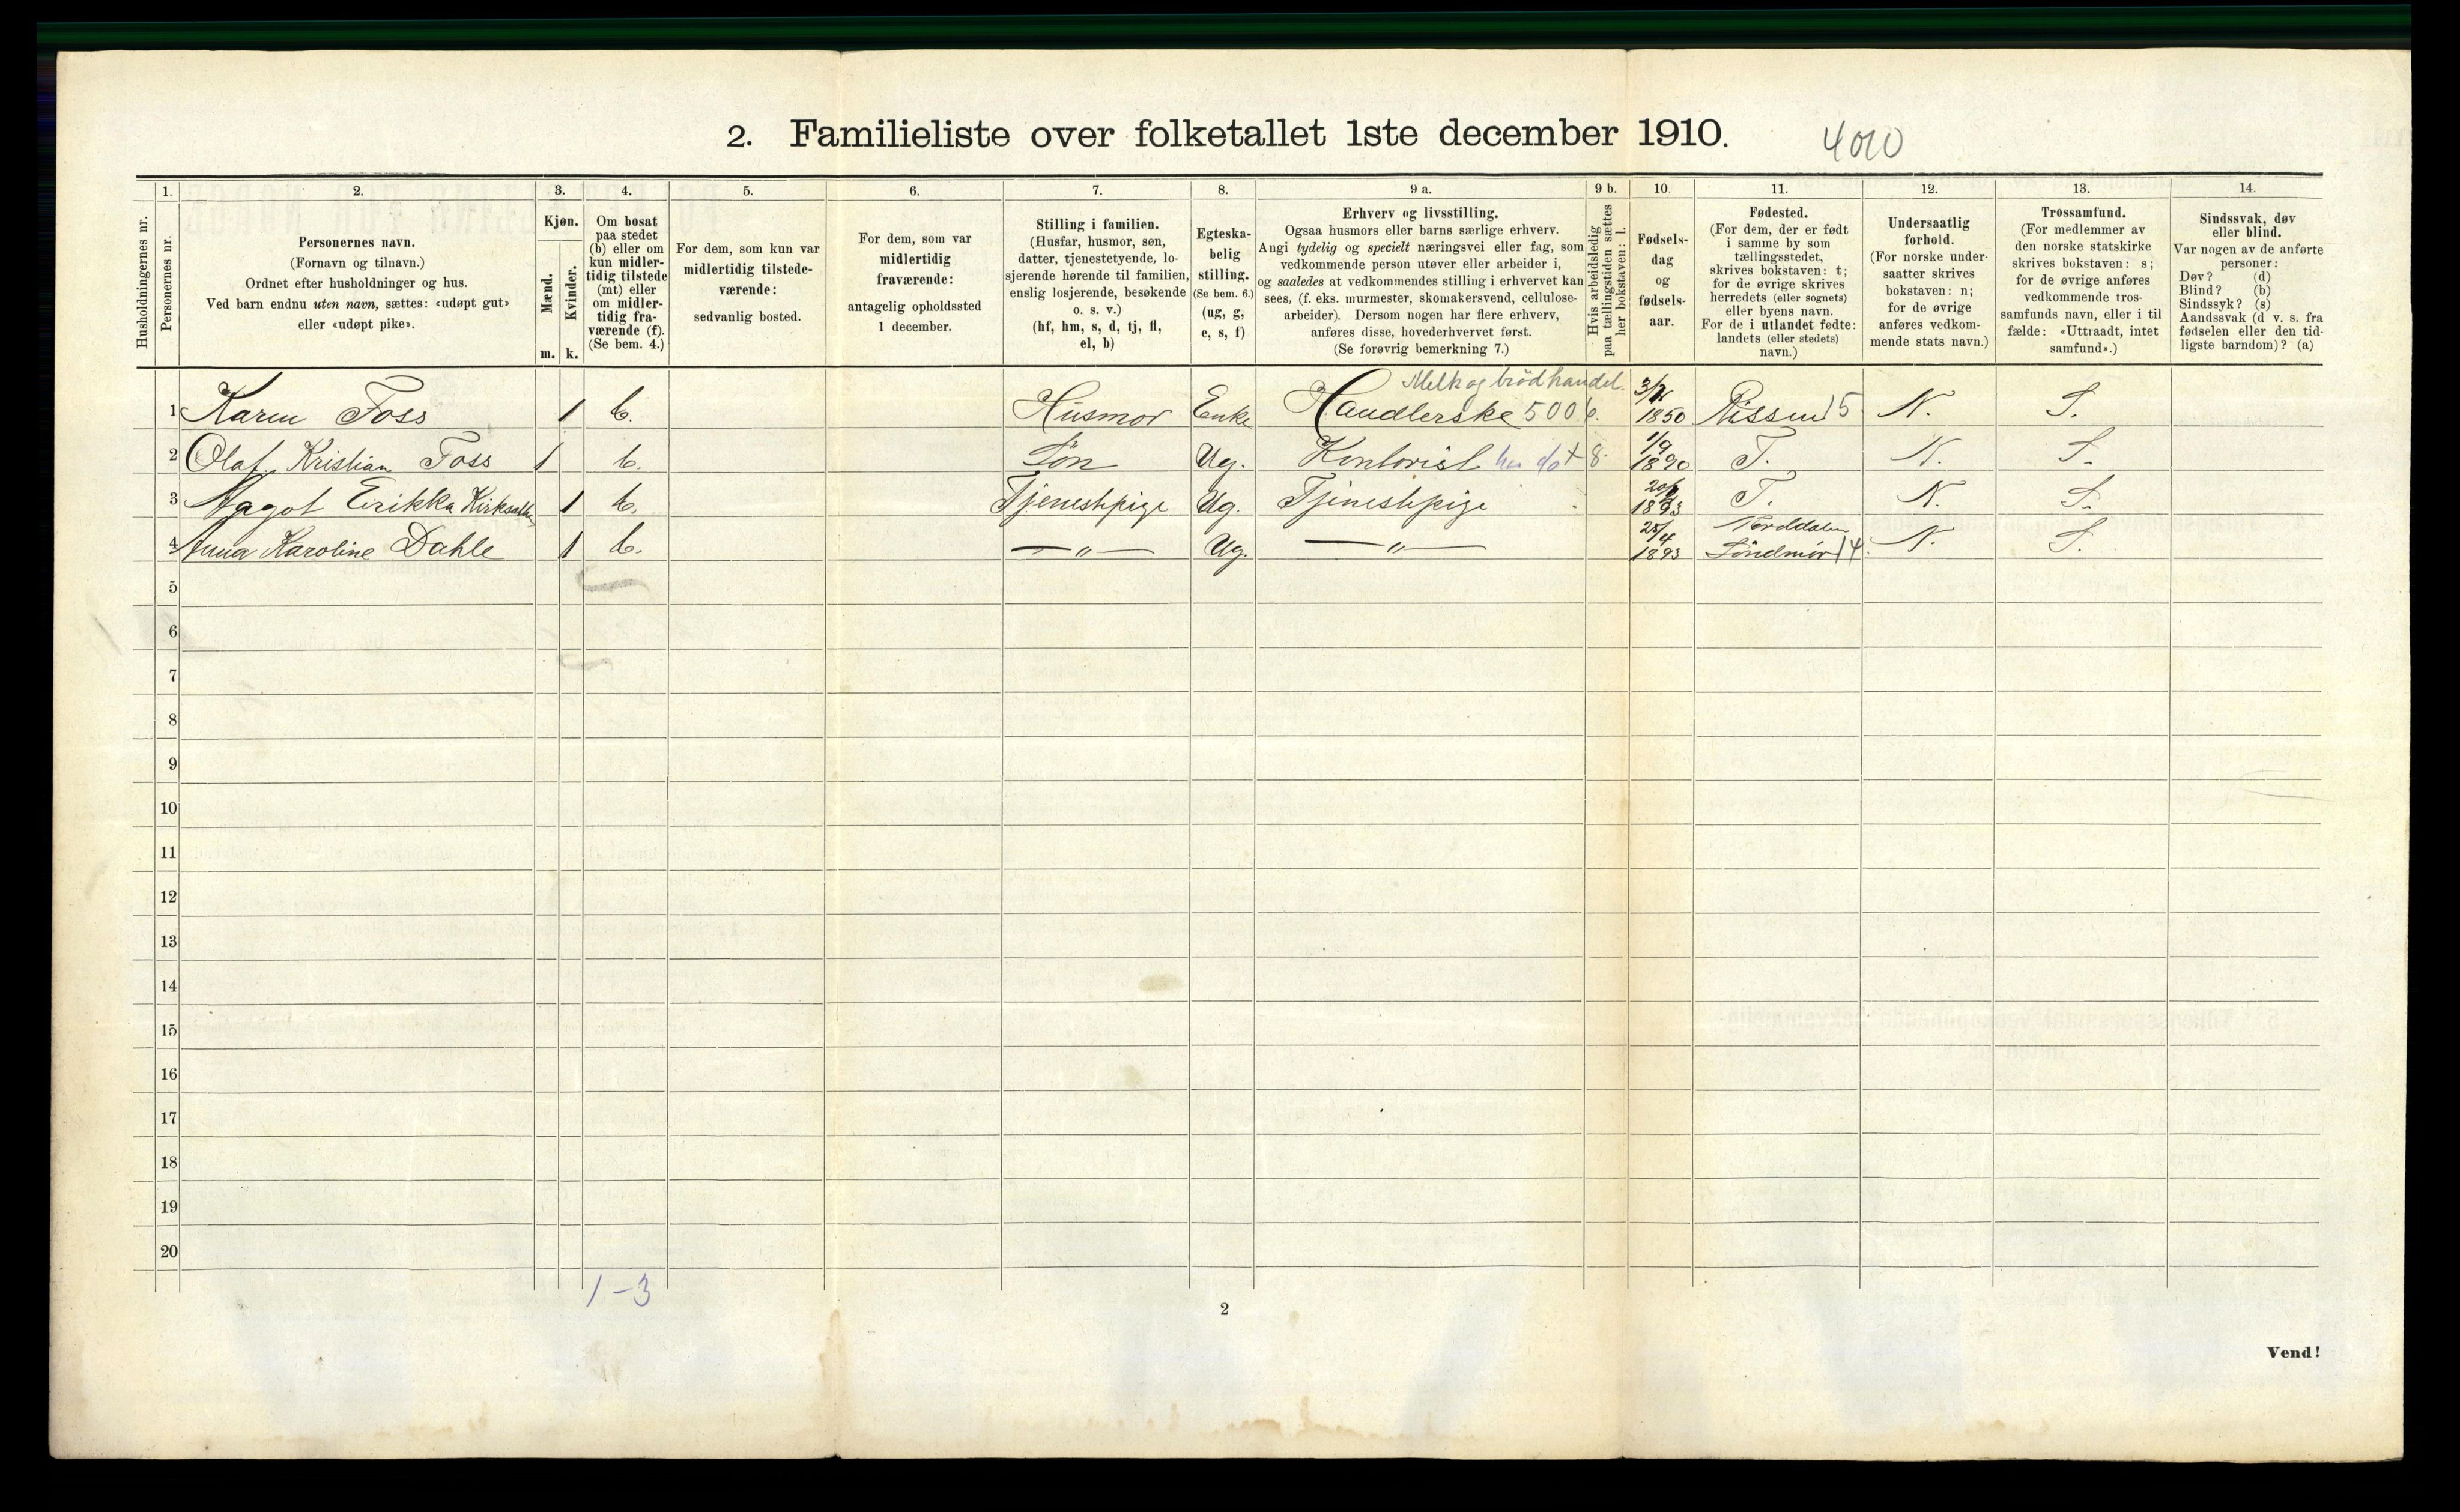 2. Familieliste over folketallet 1ste december 1910.
4010
Husholdningernes nr.
1.
Personernes nr.
2.
Personernes navn.
(Fornavn og tilnavn.)
Ordnet efter husholdninger og hus.
Ved barn endnu uten navn, sættes: «udøpt gut»
eller «udøpt pike».
3.
Kjøn.
Mænd.
Kvinder.
m. k.
4.
Om bosat
paa stedet
(b) eller om
kun midler-
tidig tilstede
(mt) eller
om midler-
tidig fra-
værende (f).
(Se bem. 4.)
5.
For dem, som kun var
midlertidig tilstede-
værende:
sedvanlig bosted.
6.
For dem, som var
midlertidig
fraværende:
antagelig opholdssted
1 december.
7.
Stilling i familien.
(Husfar, husmor, søn,
datter, tjenestetyende, lo-
sjerende hørende til familien,
enslig losjerende, besøkende
o. s. v.)
(hf, hm, s, d, tj, fl,
el, b)
8.
Egteska-
belig
stilling.
(Se bem. 6.)
(ug, g,
e, s, f)
9 a.
Erhverv og livsstilling.
Ogsaa husmors eller barns særlige erhverv.
Angi tydelig og specielt næringsvei eller fag, som
vedkommende person utøver eller arbeider i,
og saaledes at vedkommendes stilling i erhvervet kan
sees, (f. eks. murmester, skomakersvend, cellulose-
arbeider). Dersom nogen har flere erhverv,
anføres disse, hovederhvervet først.
(Se forøvrig bemerkning 7.)
9 b.
Hvis arbeidsledig
paa tællingstiden sættes
her bokstaven: l.
10.
Fødsels-
dag
og
fødsels-
aar.
11.
Fødested.
(For dem, der er født
i samme by som
tællingsstedet,
skrives bokstaven: t;
for de øvrige skrives
herredets (eller sognets)
eller byens navn.
For de i utlandet fødte:
landets (eller stedets)
navn.)
12.
Undersaatlig
forhold.
(For norske under-
saatter skrives
bokstaven: n;
for de øvrige
anføres vedkom-
mende stats navn.)
13.
Trossamfund.
(For medlemmer av
den norske statskirke
skrives bokstaven: s;
for de øvrige anføres
vedkommende tros-
samfunds navn, eller i til
fælde: «Uttraadt, intet
samfund».)
14.
Sindssvak, døv
eller blind.
Var nogen av de anførte
personer:
Døv? (d)
Blind? (b)
Sindssyk? (s)
Aandssvak (d v. s. fra
fødselen eller den tid-
ligste barndom)? (a)
Melk og brød handel.
1 Karen Foss 1 b. Husmor Enke Handlerske 500 1850 Rissen 15 N. S.
2 Olaf Kristian Foss 1 b. Søn Ug. Kontorist 8. 1/9 1890 T. N. S.
3 Aagot Erikka 1 b. Tjenestpige Ug. Tjenestpige 1893 T. N. S.
4 Anna Karoline Dahle 1 b. — " — Ug. — " — 25/4 1893 Norddalen Söndmör 14. N. S.
5
6
7
8
9
10
11
12
13
14
15
16
17
18
19
20
1-3
2
Vend!